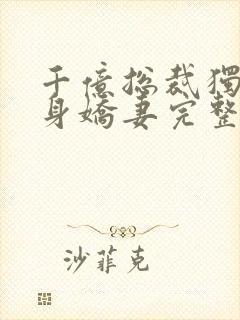 千億總裁獨
身嬌妻完整
沙菲克